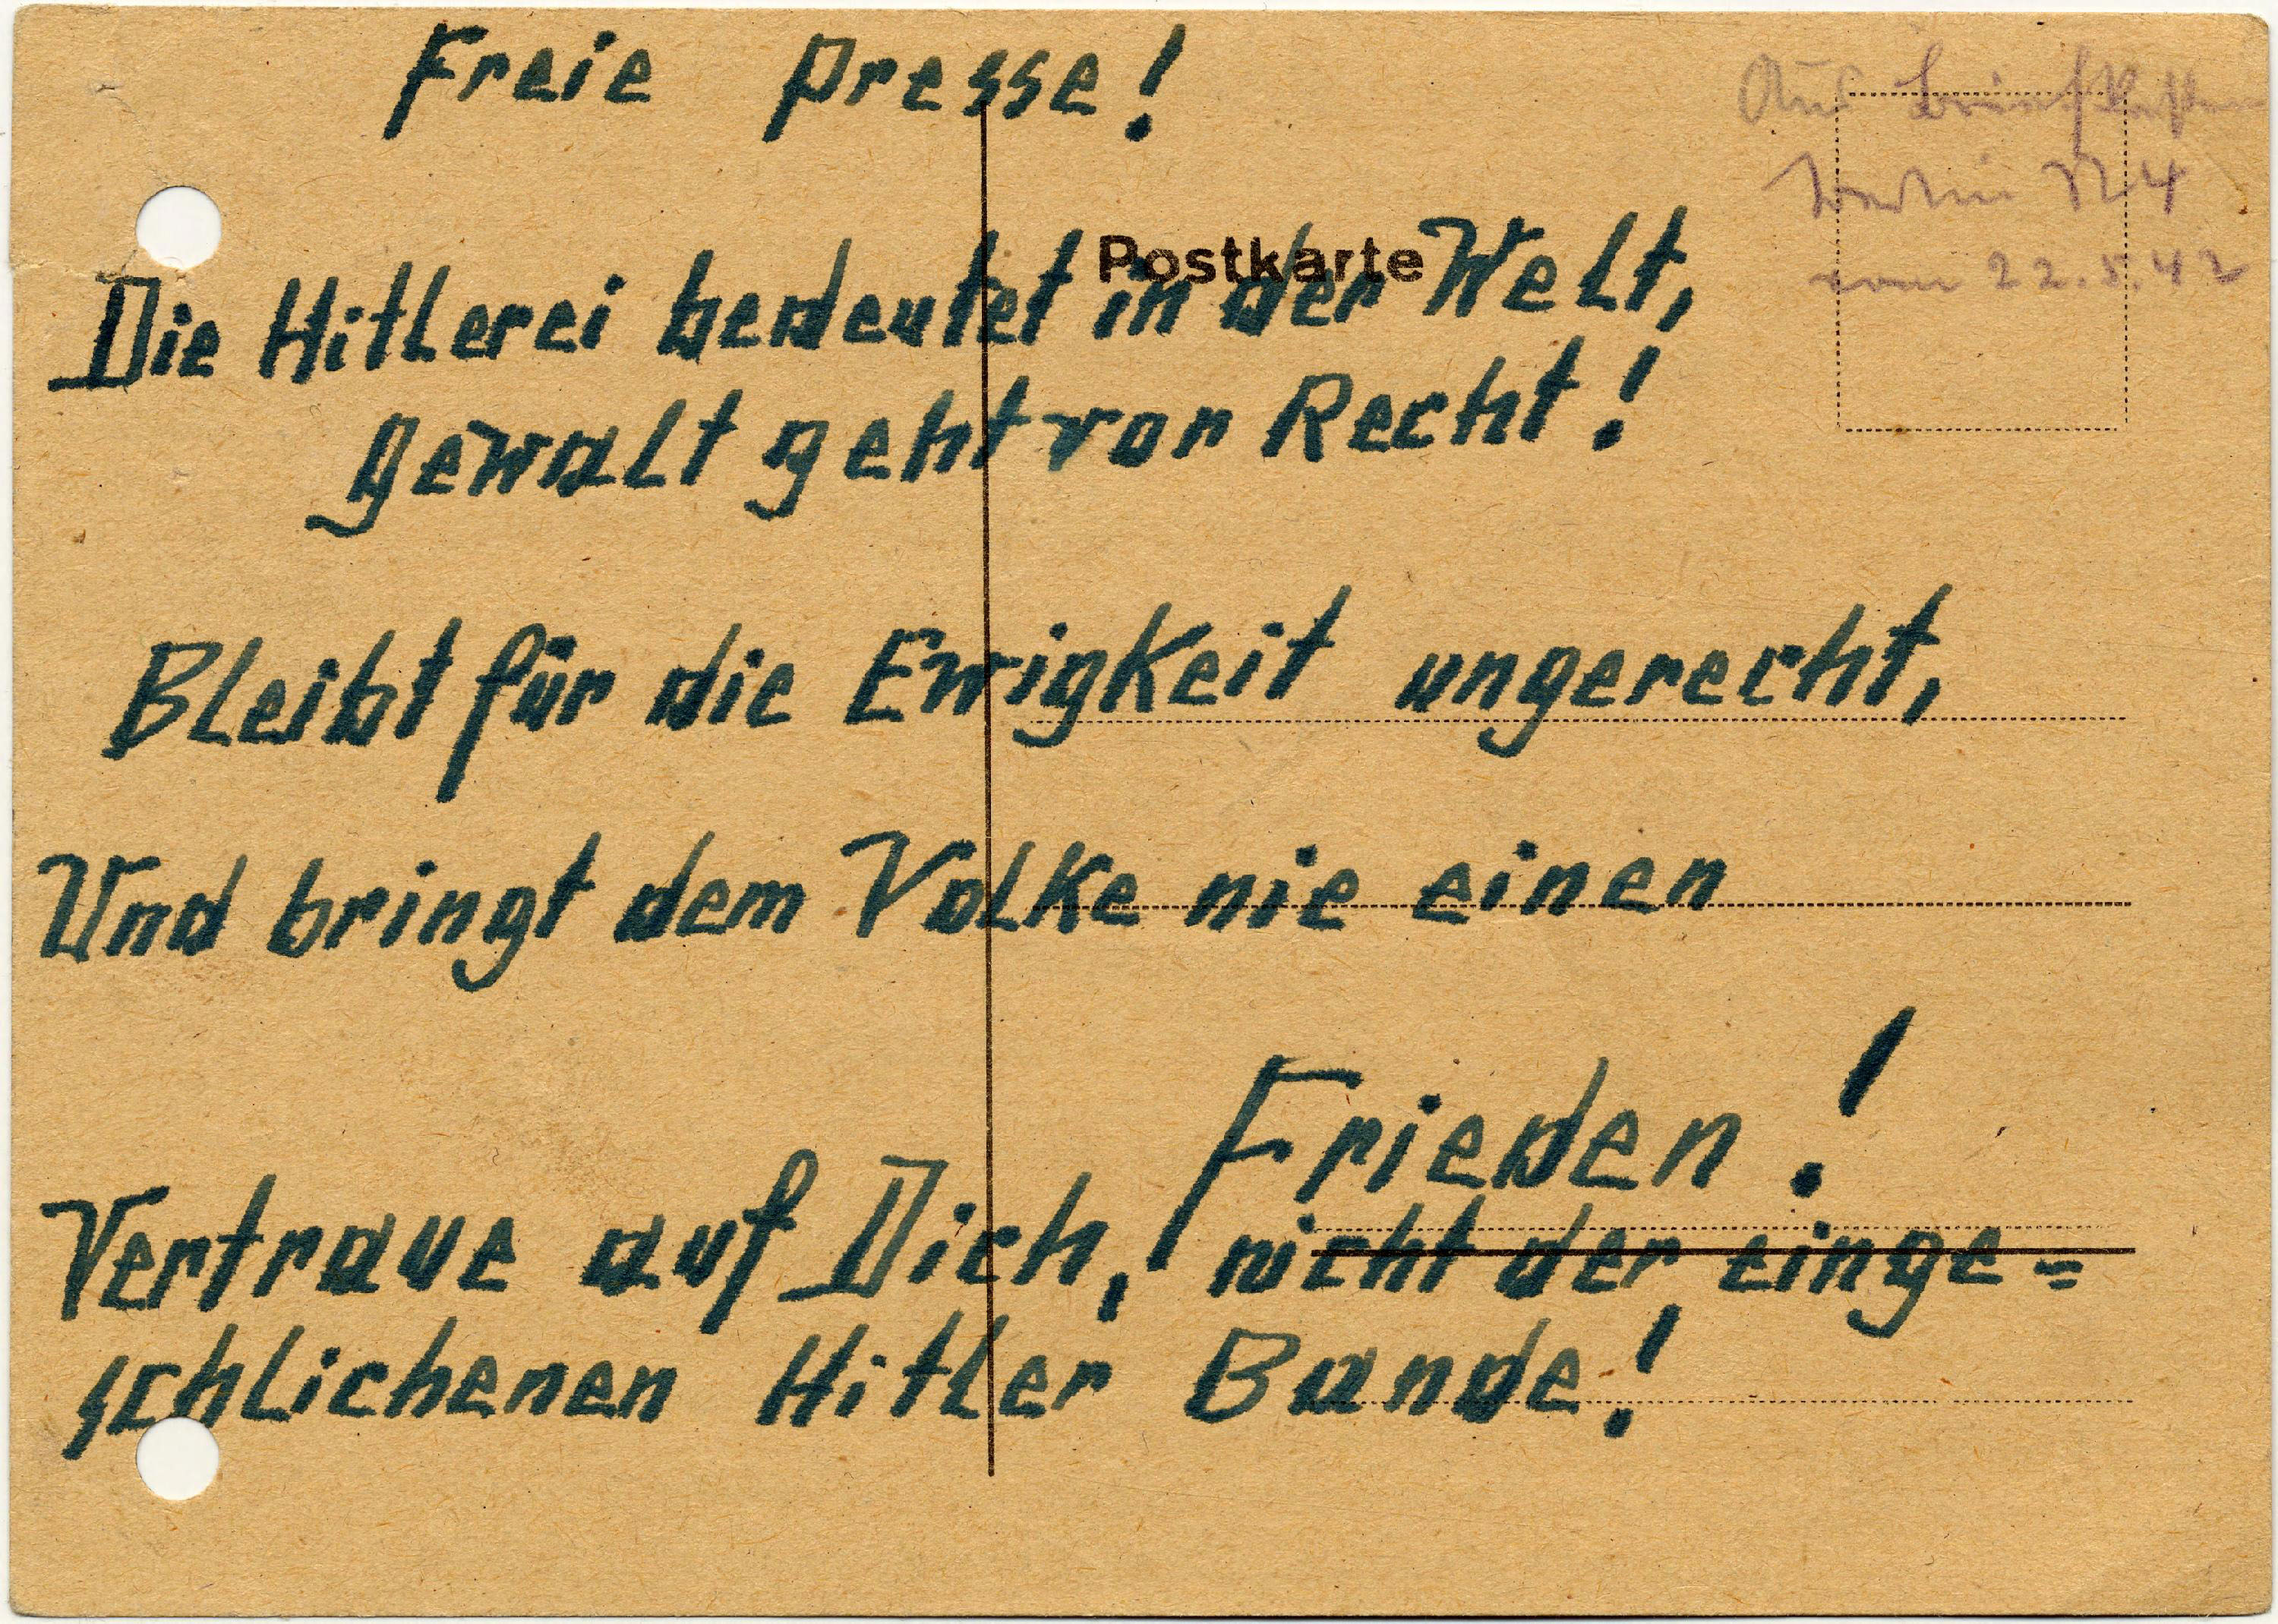 Freie Presse!
Aus Briefkasten
Berlin N 4
vom 22.5.42
Postkarte
Die Hitlerei bedeutet in der Welt,
Gewalt geht vor Recht!
Bleibt für die Ewigkeit ungerecht,
Und bringt dem Volke nie einen
Frieden!
Vertraue auf Dich, nicht der einge=
schlichenen Hitler Bande!